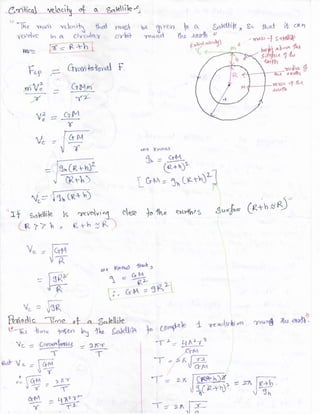 Critical velocity of a Satellite:
"The min velocity that must be given to a Satellite, so that it can
revolve in a circular orbit round the earth"
(critical velocity)
m - mass of satellite
r = R + h
height above the
surface of the
earth
radius of
the earth
M = mass of the
earth
Fcp = Gravitational F.
mVc²/r = GMm/r²
Vc² = GM/r
Vc = √GM/r
we know
gh = GM/(R+h)²
= √gh(R+h)²/(R+h)
[GM = gh(R+h)²]
Vc = √gh(R+h)
If satellite is revolving close to the earth's surface (R+h≈R)
(R>>h, R+h≈R)
Vc = √GM/R
we know that,
= √gR²/R
g = GM/R²
[∴ GM = gR²]
Vc = √gR
Periodic Time of a Satellite
"The time taken by the satellite to complete 1 revolution round the earth"
Vc = Circumference/T = 2πr/T
But Vc = √GM/r
∴ √GM/r = 2πr/T
GM/r = 4π²r²/T²
T² = 4π²r³/GM
T = 2π√r³/GM
T = 2π√(R+h)³/gh(R+h)² = 2π√R+h/gh
T = 2π√r/g